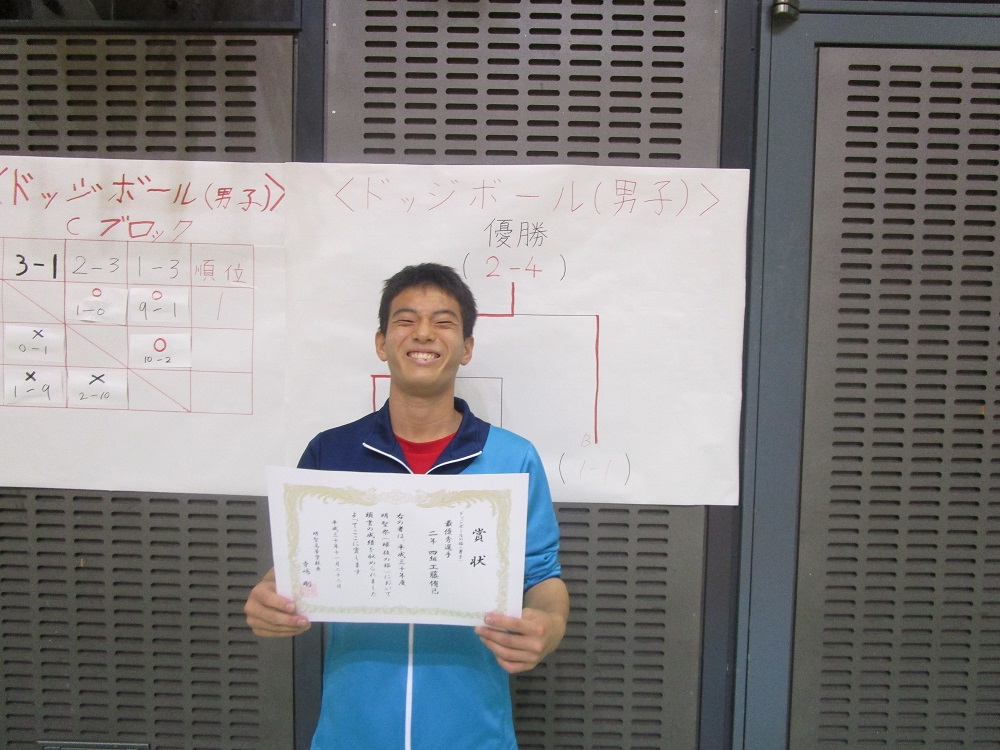 <ドッジボール(男子)>
Cブロック
3-1 2-3 1-3 順位
○ ○
1-0 9-1 1
× ○
0-1 10-2
× ×
1-9 2-10
<ドッジボール(男子)>
優勝
(2-4)
B
(1-1)
賞状
最優秀選手
二年 四組 工藤侑己
右の者は、平成三十年度
明聖祭「球技の部」において
頭書の成績を収められました
よってここに賞します
平成三十年十一月二十二日
明聖高等学校長